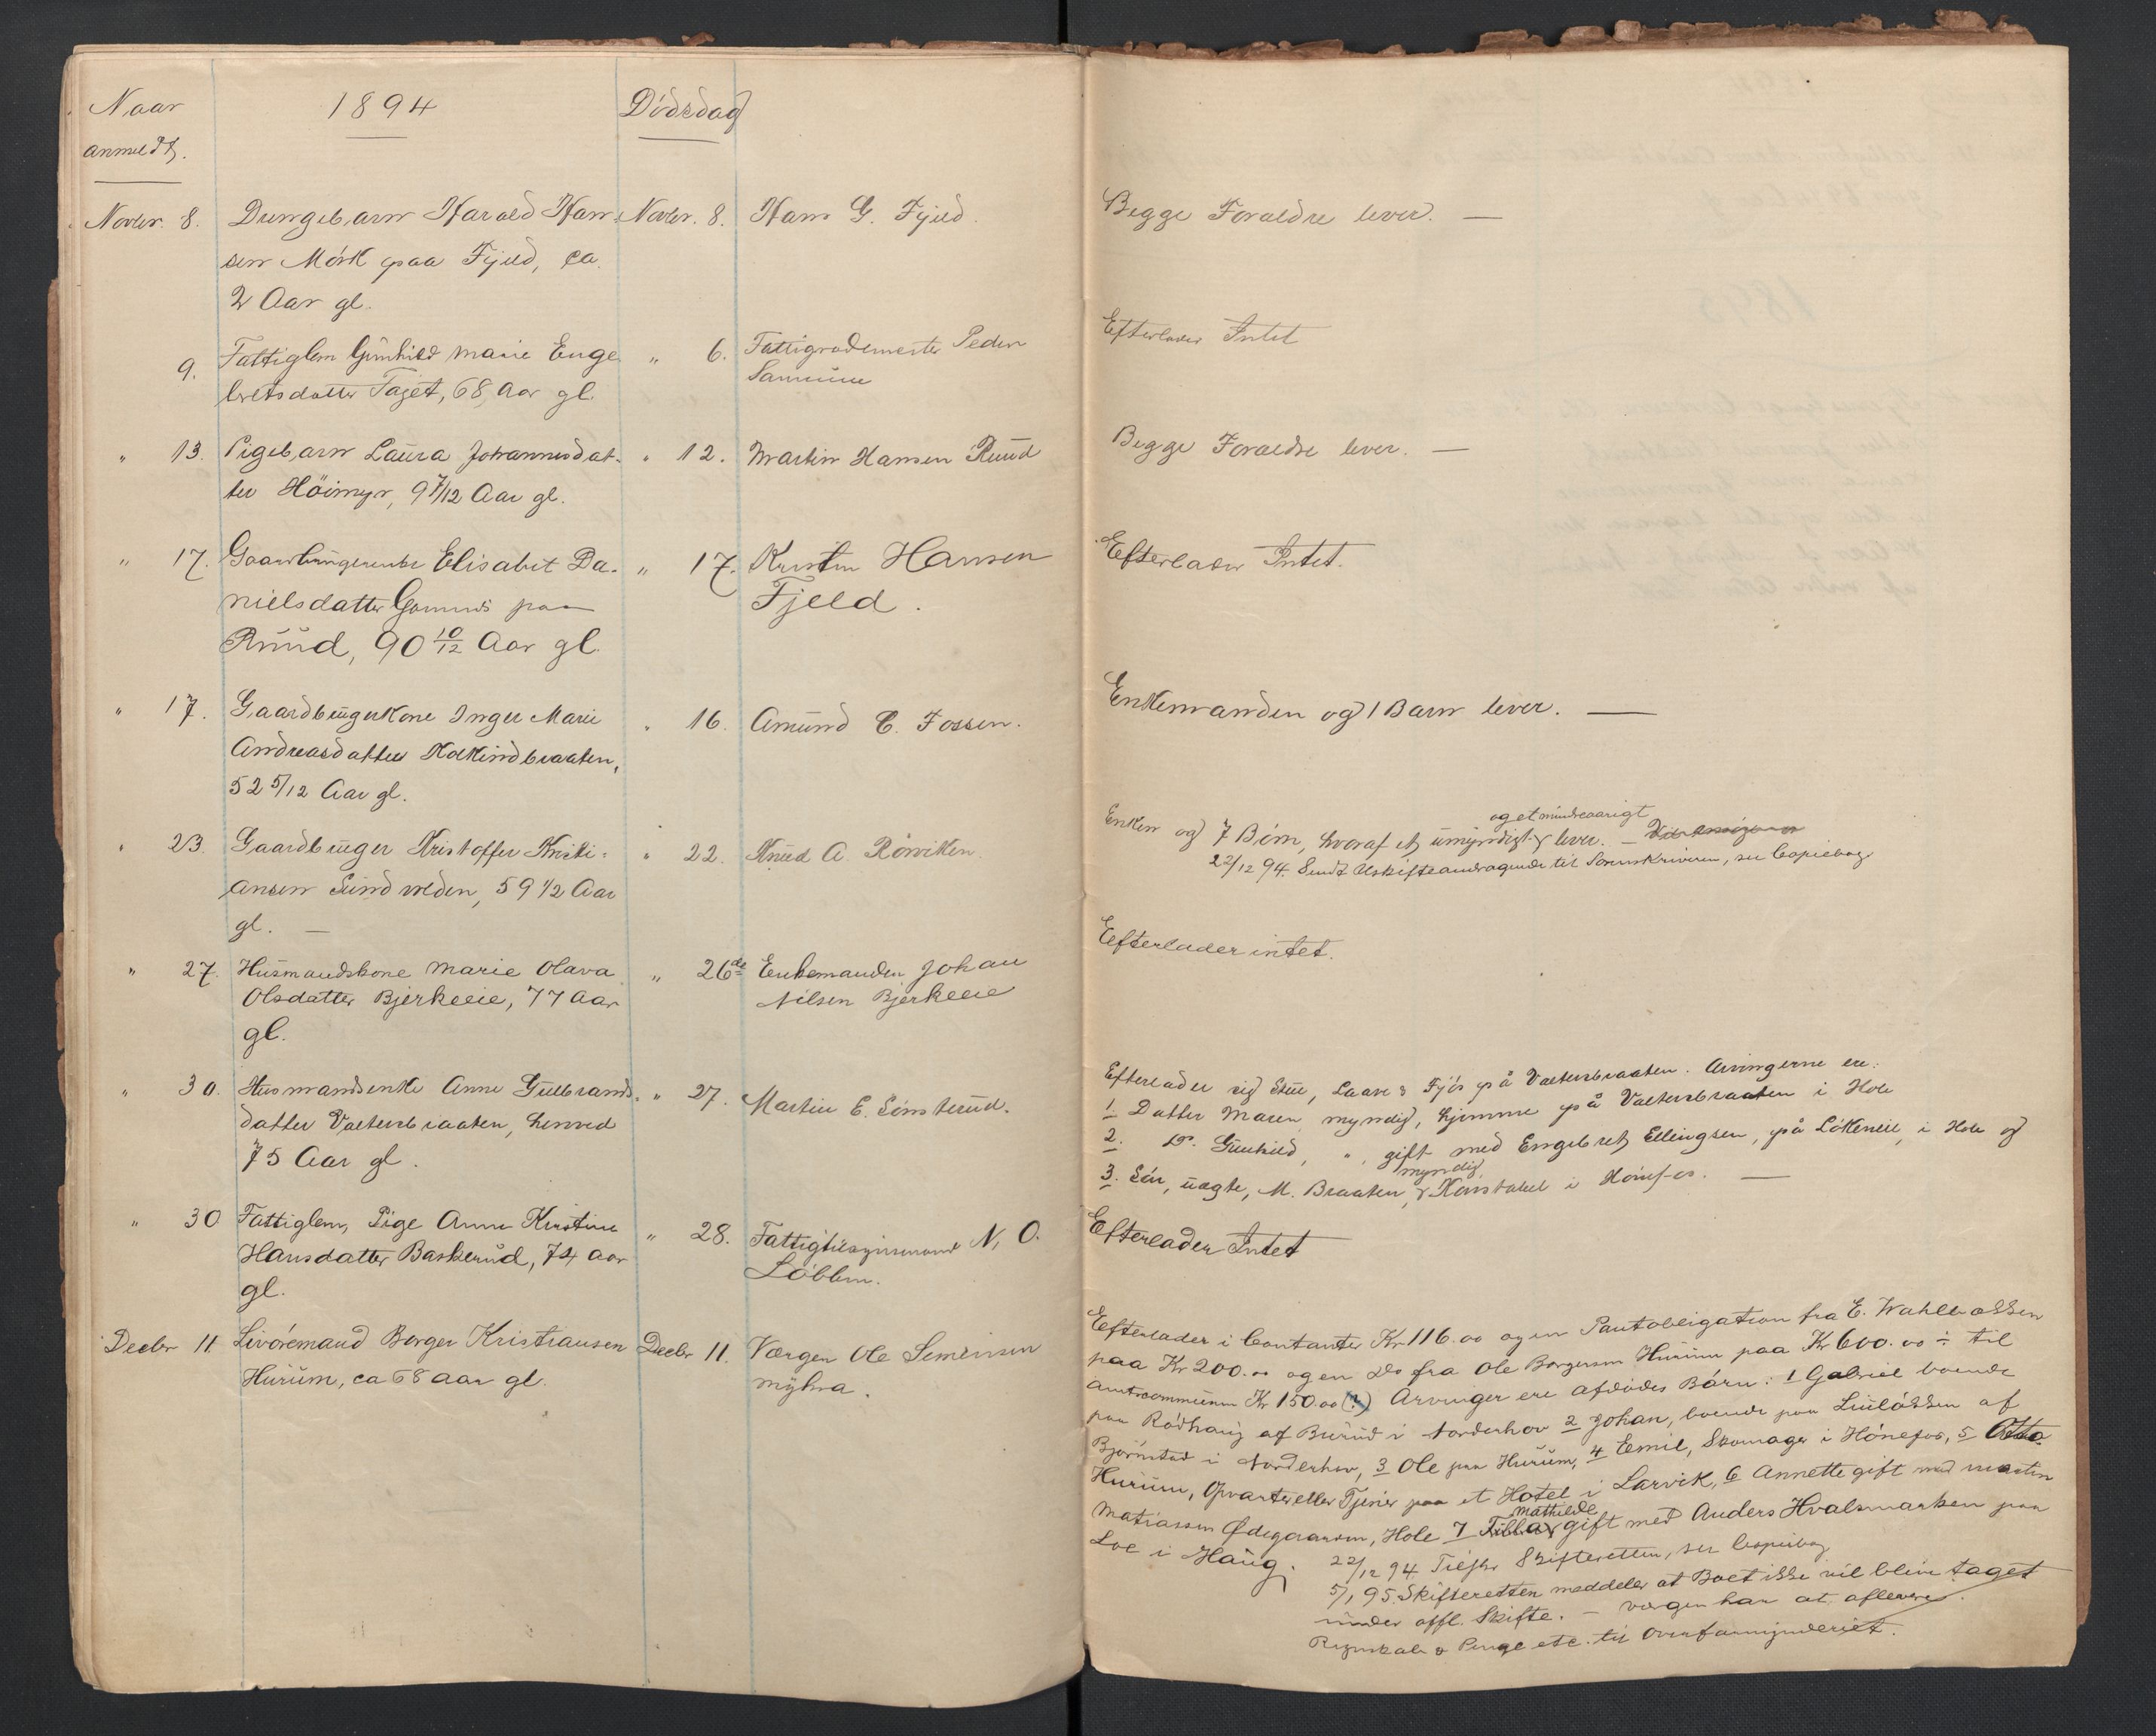 Naar
anmeldt.
1894
Dödsdag
Novbr. 8.
Drengebarn Harald Han-
sen Mörk paa Fjeld, ca.
2 Aar gl.
Novbr. 8.
Hans G. Fjeld.
Begge Forældre lever. —
9.
Fattiglem Gunhild Marie Enge
bretsdatter Fajet, 68 Aar gl.
" 6.
Fattigrodemester Peder
Efterlader Intet
" 13.
Pigebarn Laura Johannesdat-
ter Höimyr, 9 7/12 Aar gl.
" 12.
Martin Hansen Ruud
Begge Forældre lever. —
" 17.
Elisabet Da-
nielsdatter paa
Ruud, 90 10/12 Aar gl.
" 17.
Kristen Hansen
Fjeld.
Efterlader Intet.
" 17.
Gaardbrugerkone Inger Marie
Andreasdatter Kokkindbraaten,
52 5/12 Aar gl.
" 16.
Amund C. Fossen.
Enkemanden og 1 Barn lever. —
" 23.
Gaardbruger Kristoffer Kristi-
ansen Sundvolden, 59 1/2 Aar
gl. —
" 22.
Knud A. Rörviken.
og et mindreaarigt
Enken og 7 Börn, hvoraf et umyndigt lever. —
22/12 94. Sendt Uskifteandragende til Sorenskriveren, se Copiebog
" 27.
Husmandskone Marie Olava
Olsdatter Bjerkeeie, 77 Aar
gl.
" 26de
Enkemanden Johan
Nilsen Bjerkeeie
Efterlader intet.
" 30.
Husmandsenke Anne Gulbrands-
datter Vaetersbraaten, henved
75 Aar gl.
" 27.
Martin E. Sönsterud.
Efterlader sig Stue, Laave & Fjös på Vaetersbraaten. Arvingerne ere:
1. Datter Maren, myndig, hjemme på Vaetersbraaten i Hole
2. Do. Gunhild, ", gift med Engebret Ellingsen, på Lökeneie, i Hole og
myndig
3. Sön, uægte, M. Braaten, Konstabel i Hönefos. —
" 30
Fattiglem, Pige Anne Kristine
Hansdatter Baskerud, 74 Aar
gl.
" 28.
Fattigtilsynsmand N. O.
Löbben.
Efterlader Intet
Decbr 11
Livöremand Borger Kristiansen
Hurum, ca 68 aar gl.
Decbr 11.
Værgen Ole Semensen
Myhra.
Efterlader i Contanter Kr 116.00 og en Pantobligation fra E.
paa Kr 200.00 og en Do fra Ole Borgersen Hurum paa Kr 600.00 ÷ til
Amtscommunen Kr 150.00 (?) Arvinger ere afdödes Börn: 1 Gabriel boende
paa Rödhaug af Burud i Norderhov 2 Johan, boende paa Lulökken af
Björnstad i Norderhov, 3 Ole paa Hurum, 4 Emil, Skomager i Hönefos, 5 Otto
Hurum, Opvarter eller Tjener paa et Hotel i Larvik, 6 Annette gift med Martin
Mathilde
Matiassen Ødegaarden, Hole 7 gift med Anders Hvalsmarken paa
Loe i Haug.
22/12 94 Tilskr Skifteretten, se Copiebog
5/1 95. Skifteretten meddeler at Boet ikke vil blive taget
under offl. Skifte. — Værgen har at aflevere
Regnskab & Penge etc. til Overformynderiet.